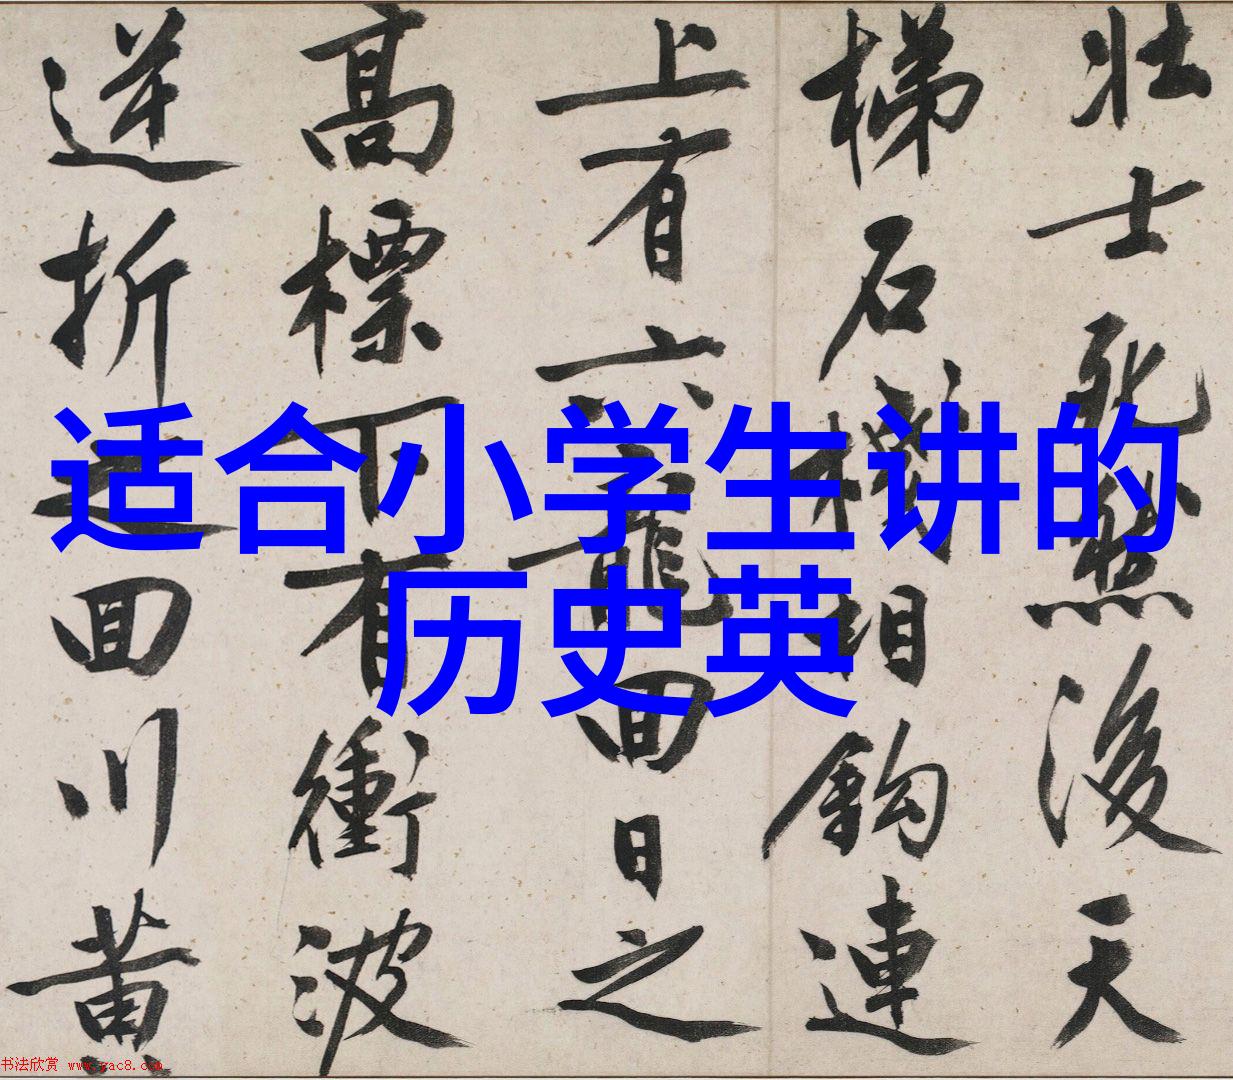 壮士死然後天
梯石棧相鈎連
上有六龍回日之
高標下有衝波
逆折之回川黄
适合小学生讲的
历史英
书法欣赏 www.yac8.com